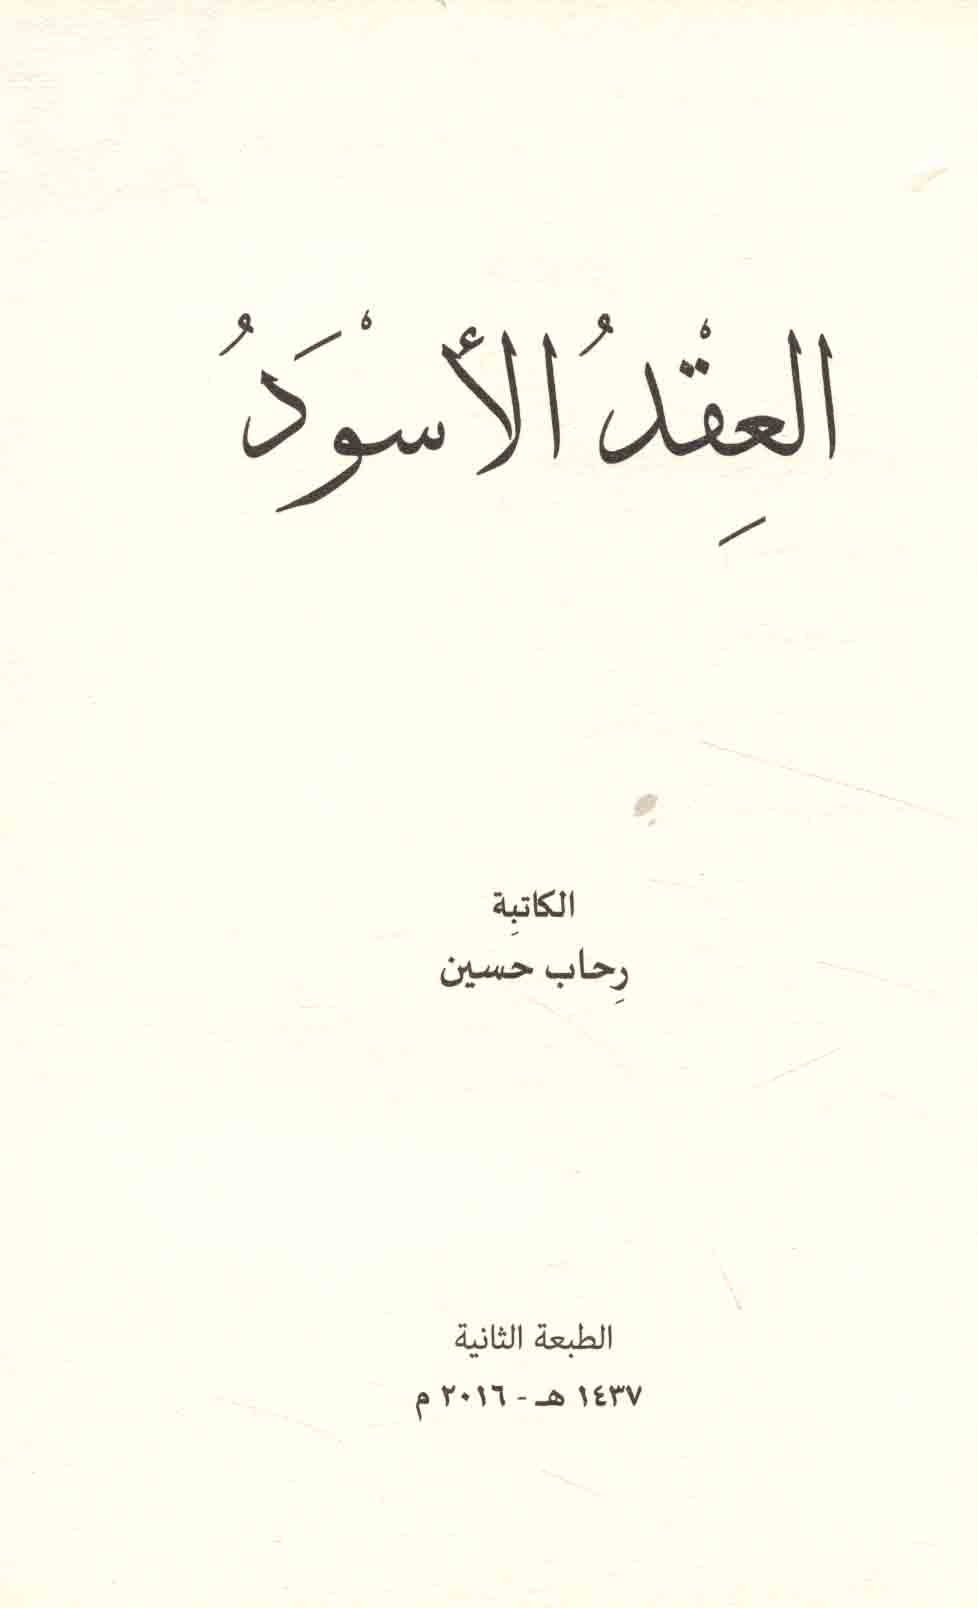 العِقْدُ الأسْوَدُ
الكاتبِة
رِحاب حسين
الطبعة الثانية
١٤٣٧ هـ - ٢٠١٦ م